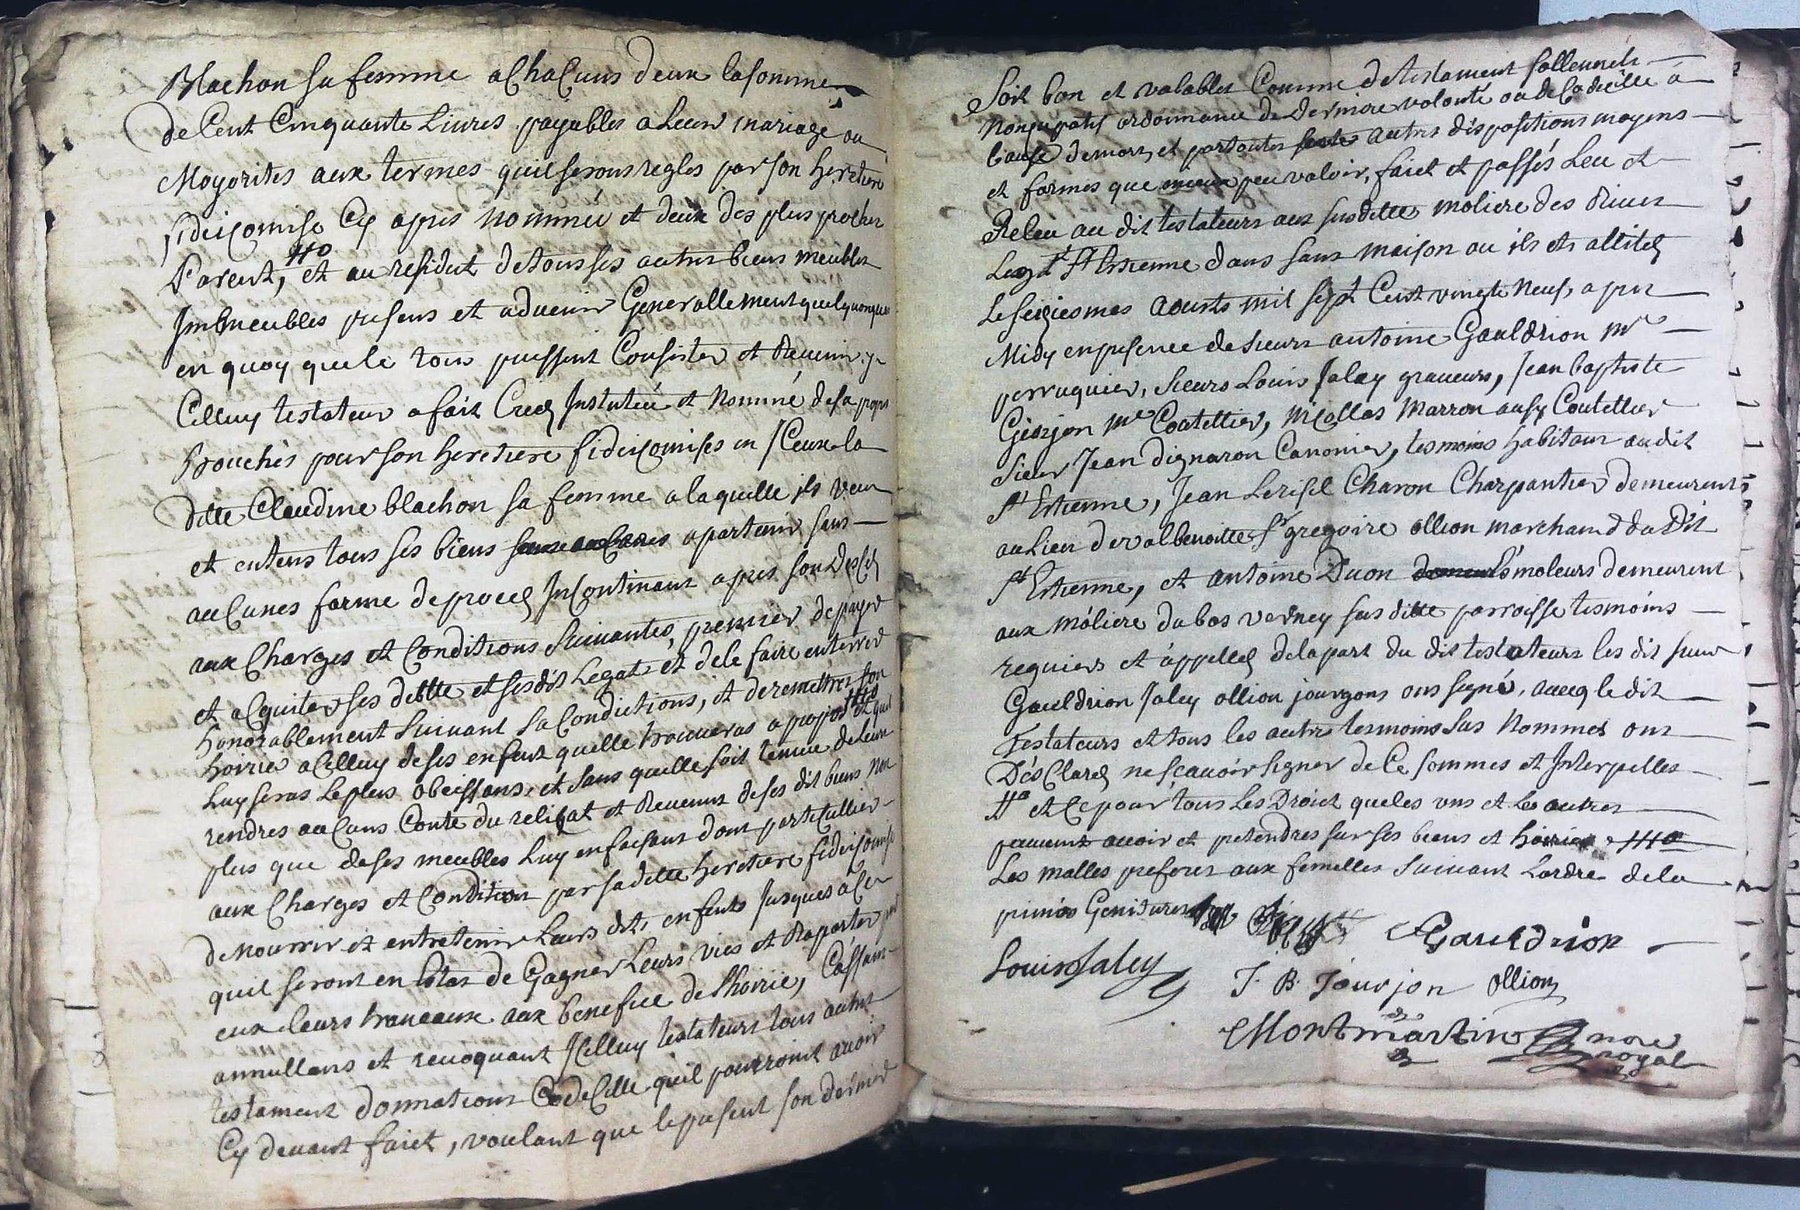 Blachon sa femme a Chacuns deux la somme
de Cent Cinquante Livres payables a Leur mariage ou
Mayorites aux termes quil serons regles par son heretiere
fideicomise Cy apres nommée et deux des plus proches
Parent, ♯o et au residut de tous ses autres biens meubles
Immeubles presens et advenir Generallement quelquonques
en quoy que le tous puissent Consister et
Celluy testateur a fait Creé Instutué et Nommé de sa propre
bouches pour son heretiere fideicomises en Iceux la
ditte Claudine blachon sa femme a laquelle ils veux
et entens tous ses biens apartenir sans
auCunes forme de proces InContinant apres son deces
aux Charges et Conditions Suivantes, premier de payer
et aCquiter ses dette et ses dits Legats et de le faire enterrer
honorablement Suivant Sa Condictions, et de remettres son
hoiries a Celluy de ses enfent quelle trouveras a propos ♯o et quil
Luy seras Le plus obeissans, et sans quelle soit tenue de Leur
rendres auCuns Conte du reliqat et Revenus de ses dit biens Non
plus que de ses meubles Luy en faisant dont particullier
aux Charges et Condition par sa ditte heretiere fideicomise
de Nourrir et entretenir Leurs dits enfents Jusques a Ce
quil seront en Etat de Gagner Leurs vies et Raporter
eux leurs travaux aux benefice de lhoirie, Cassam
annullans et revoquant ICelluy testateurs tous autres
testament donnations CodeCille quil pourroint avoir
Cy devant faict, voulant que le present son dernier
Soit bon et valables Comme de testament sollennels
Nonqupatif ordonnance de Derniere volonté ou de Codicille a
Cause de mort, et par toutes autres dispositions moyens
et formes que mieux peu valoir, faict et passés Leu et
Releu au dit testateurs aux susditte moliere des Rives
Leez St Estienne dans sans maison ou ils ets allité
Le seiziesmes aousts mil sept Cent vingte Neuf, a pres
Midy en presence de sieurs antoine Gauldrion Me
perruquier, sieurs Louis Jaley graveurs, Jean baptiste
Giorjon Me Coutellier, Nicollas Marron ausy Coutellier
sieur Jean dignaron Canonier, tesmoins habitans audit
St Estienne, Jean Charon Charpantier demeurent
au Lieu de valbenoitte Sr gregoire ollion marchand du dit
St Estienne, et antoine Duon Esmoleurs demeurent
aux moliere du bas verney sus ditte parroisse tesmoins
requiers et appelles de la part du dit testateurs les dit sieur
Gauldrion Jaley ollion jourgons ons signé, avecq le dit
Testateurs et tous les autre tesmoins sus Nommes ons
DesClarés ne scavoir signer de Ce sommes et Interpelles
♯o et Ce pour tous Les Droict queles uns et les autres
peuvent avoir et pretendres sur ses biens et hoiries ♯o
Les malles preferes aux femelles suivant Lordre de la
primos Genitures
Gauldrion
Louis Jaley
J. B. Jourjon ollion
Montmartin nore
royal